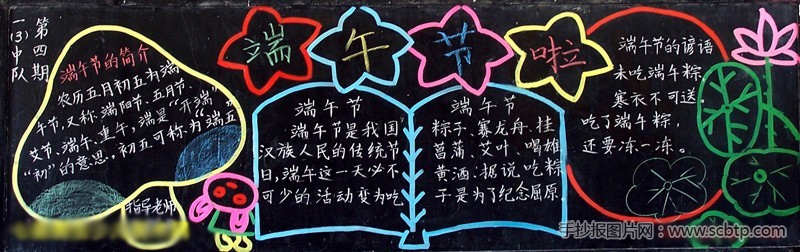 第四期
一(3)中队
端午节的简介
农历五月初五为端
午节,又称端阳节、五月节、
艾节、端午、重午,端是“开端”
“初”的意思,初五可称为“端五
指导老师
端午节啦
端午节
端午节是我国
汉族人民的传统节
日,端午这一天必不
可少的活动变为吃
端午节
粽子、赛龙舟、挂
菖蒲、艾叶、喝雄
黄酒。据说,吃粽
子是为了纪念屈原。
端午节的谚语
未吃端午粽,
寒衣不可送。
吃了端午粽,
还要冻一冻。
手抄报图片网:www.scbtp.com